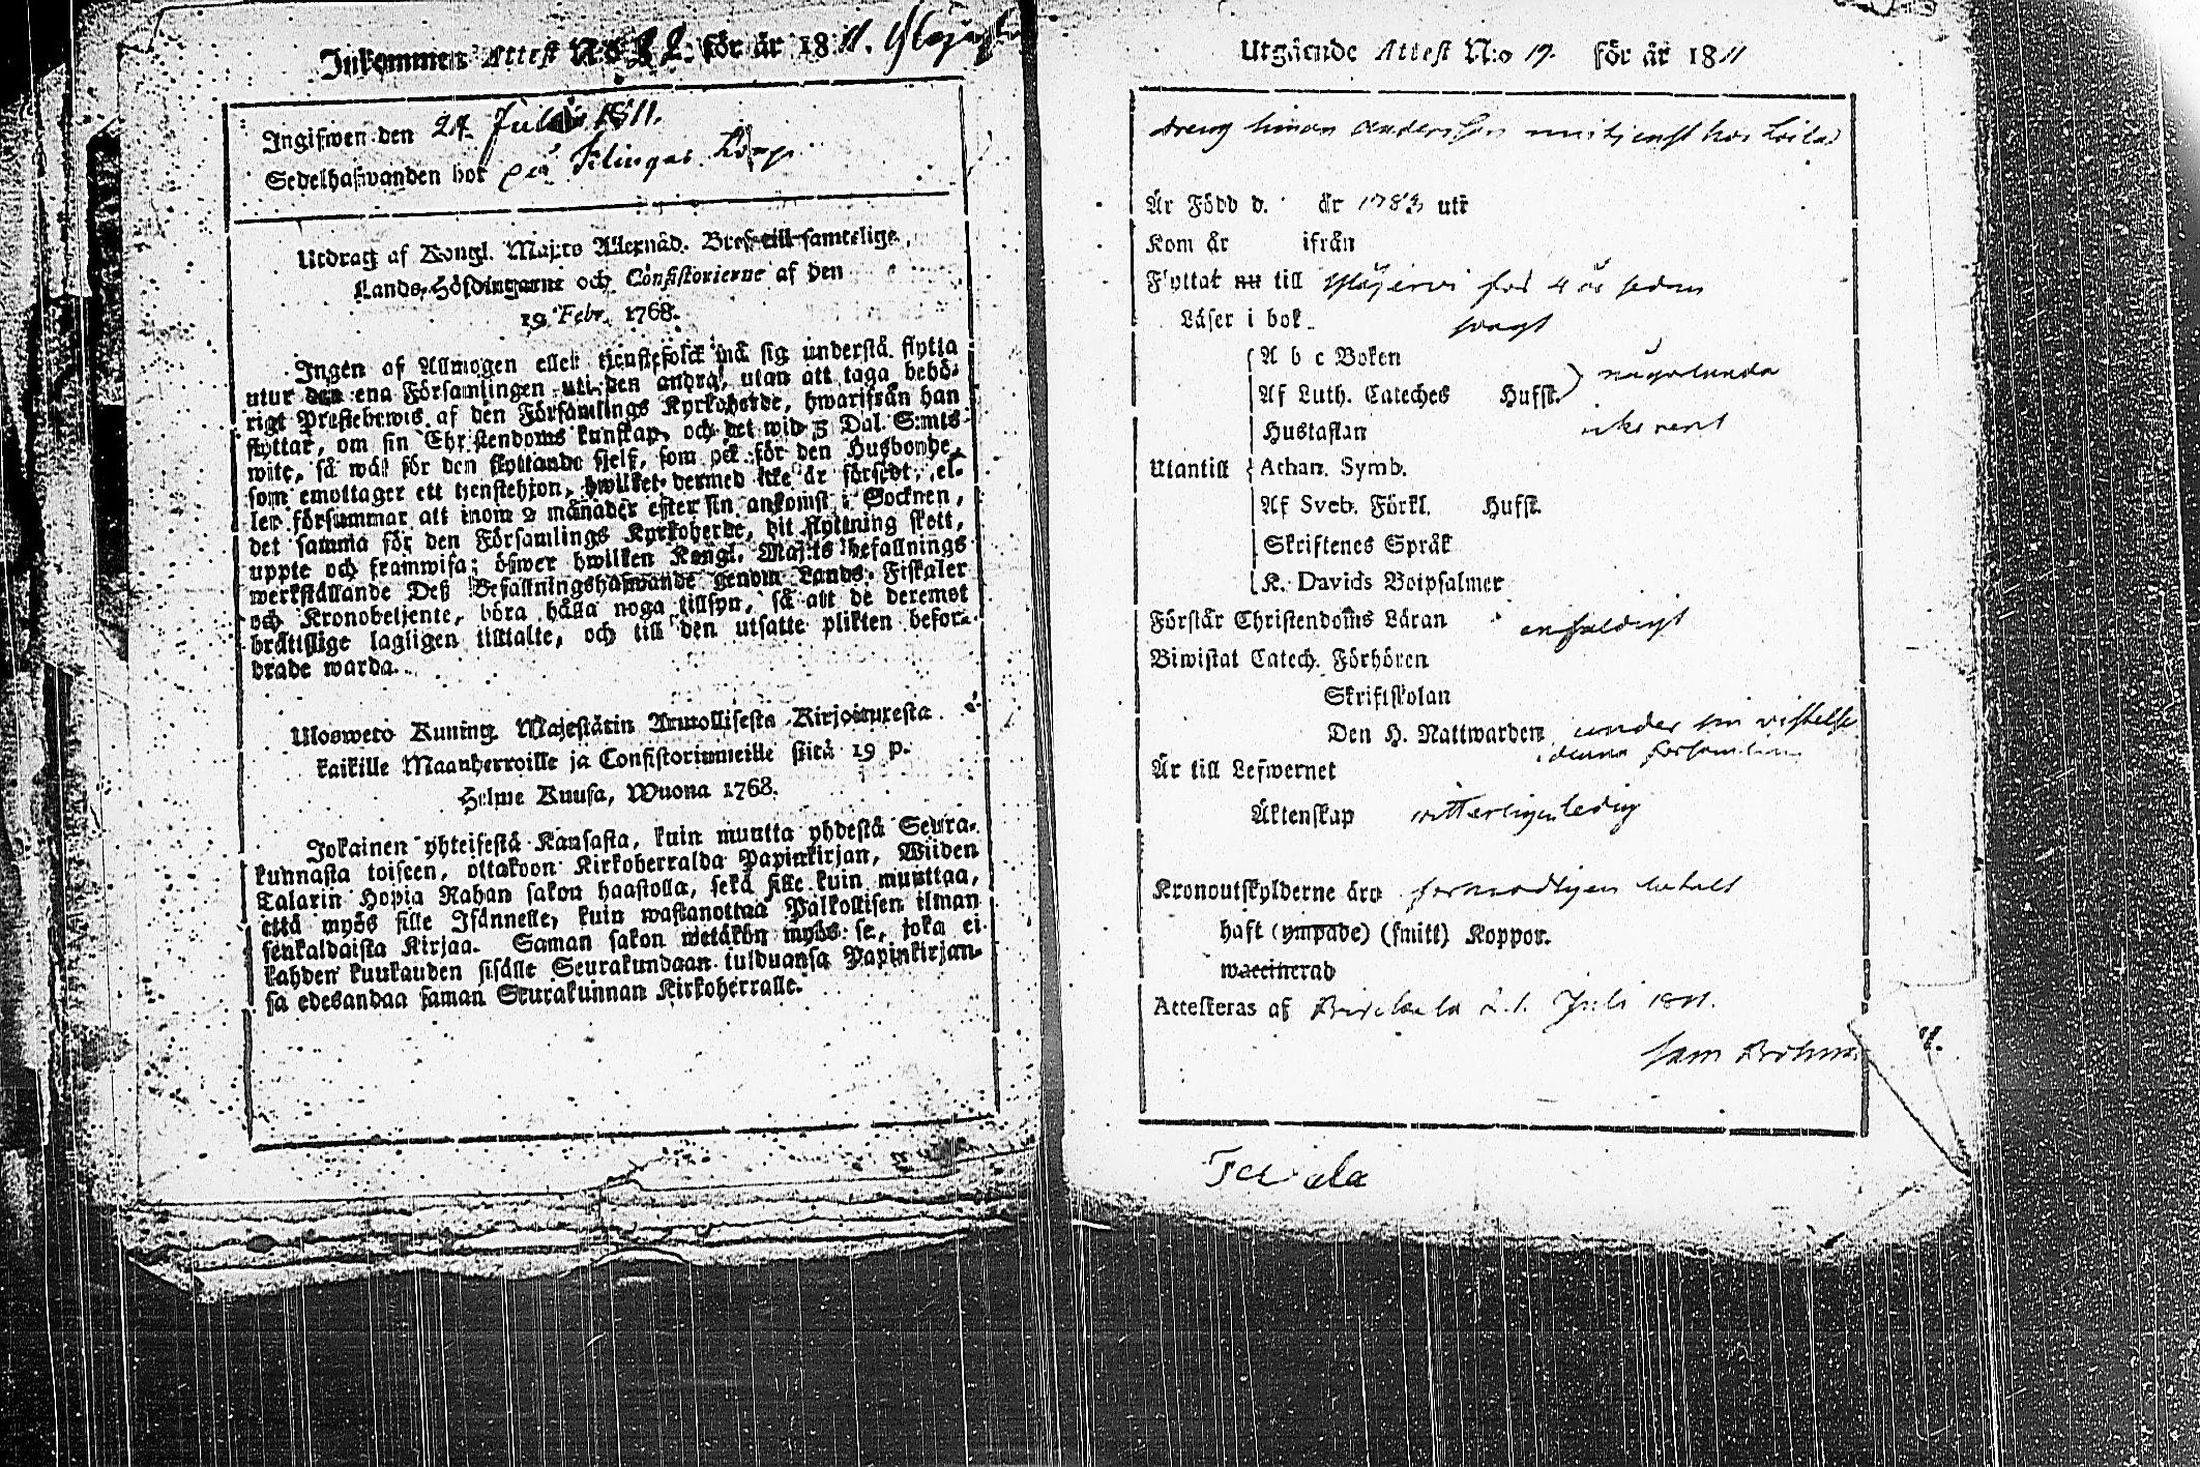 Inkommen Attest N:o 22. för år 1811.
Ingifwen den 24 Julii 1811.
Sedelhafwanden bor på
Utdrag af Kongl. Maj:ts Allernåd. Bref till samtelige
Lands-Höfdingarne och Consistorierne af den
19 Febr. 1768.
Ingen af Allmogen eller tjenstefolck må sig understå flytta
utur den ena Församlingen uti den andra, utan att taga behö-
rigt Prestebewis af den Församlings Kyrkoherde, hwarifrån han
flyttar, om sin Christendoms kunskap, och det wid 5 Dal. S:mts
wite, så wäl för den flyttande sjelf, som ock för den Husbonde,
som emottager ett tjenstehjon, hwilket dermed icke är försedt, el-
ler försummar att inom 2 månader efter sin ankomst i Socknen,
det samma för den Församlings Kyrkoherde, dit flyttning skett,
uppte och framwisa; öfwer hwilken Kongl. Maj:ts befallnings
werkställande Deß Befallningshafwande genom Lands-Fiskaler
och Kronobetjente, böra hålla noga tillsyn, så att de deremot
brätslige lagligen tilltalte, och till den utsatte plikten befor-
drade warda.
Ulosweto Kuning. Majestätin Armollisesta Kirjoituxesta
kaikille Maanherroille ja Consistoriumeille siitä 19 p.
Helme Kuusa, Wuona 1768.
Jokainen yhteisestä Kansasta, kuin muutta yhdestä Seura-
kunnasta toiseen, ottakoon Kirkoherralda Papinkirjan, Wiiden
Talarin Hopia Rahan sakon haastolla, sekä sille kuin muuttaa,
että myös sille Isännelle, kuin wastanottaa Palkollisen ilman
senkaldaista Kirjaa. Saman sakon wetäkön myös se, joka ei
kahden kuukauden sisälle Seurakundaan tulduansa Papinkirjan-
sa edesandaa saman Seurakunnan Kirkoherralle.
Utgående Attest N:o 19. för år 1811
dreng Simon Andersson
Är Född d. år 1783 uti
Kom år ifrån
Flyttat nu till Ylöjervi för 4 år sedan
Läser i bok svagt
A b c Boken
Af Luth. Cateches Hufst. någorlunda
Hustaflan icke rent
Utantill Athan. Symb.
Af Sveb. Förkl. Hufst.
Skriftenes Språk
K. Davids Botpsalmer
Förstår Christendoms Läran enfaldigt
Biwistat Catech. Förhören
Skriftskolan
Den H. Nattwarden under sin vistelse
i denna församling
Är till Lefwernet
Äktenskap witterligen ledig
Kronoutskylderne äro förmodligen betalt
haft (ympade) (smitt) Koppor.
waccinerad
Attesteras af Birckala d. 1. Juli 1811.
Sam